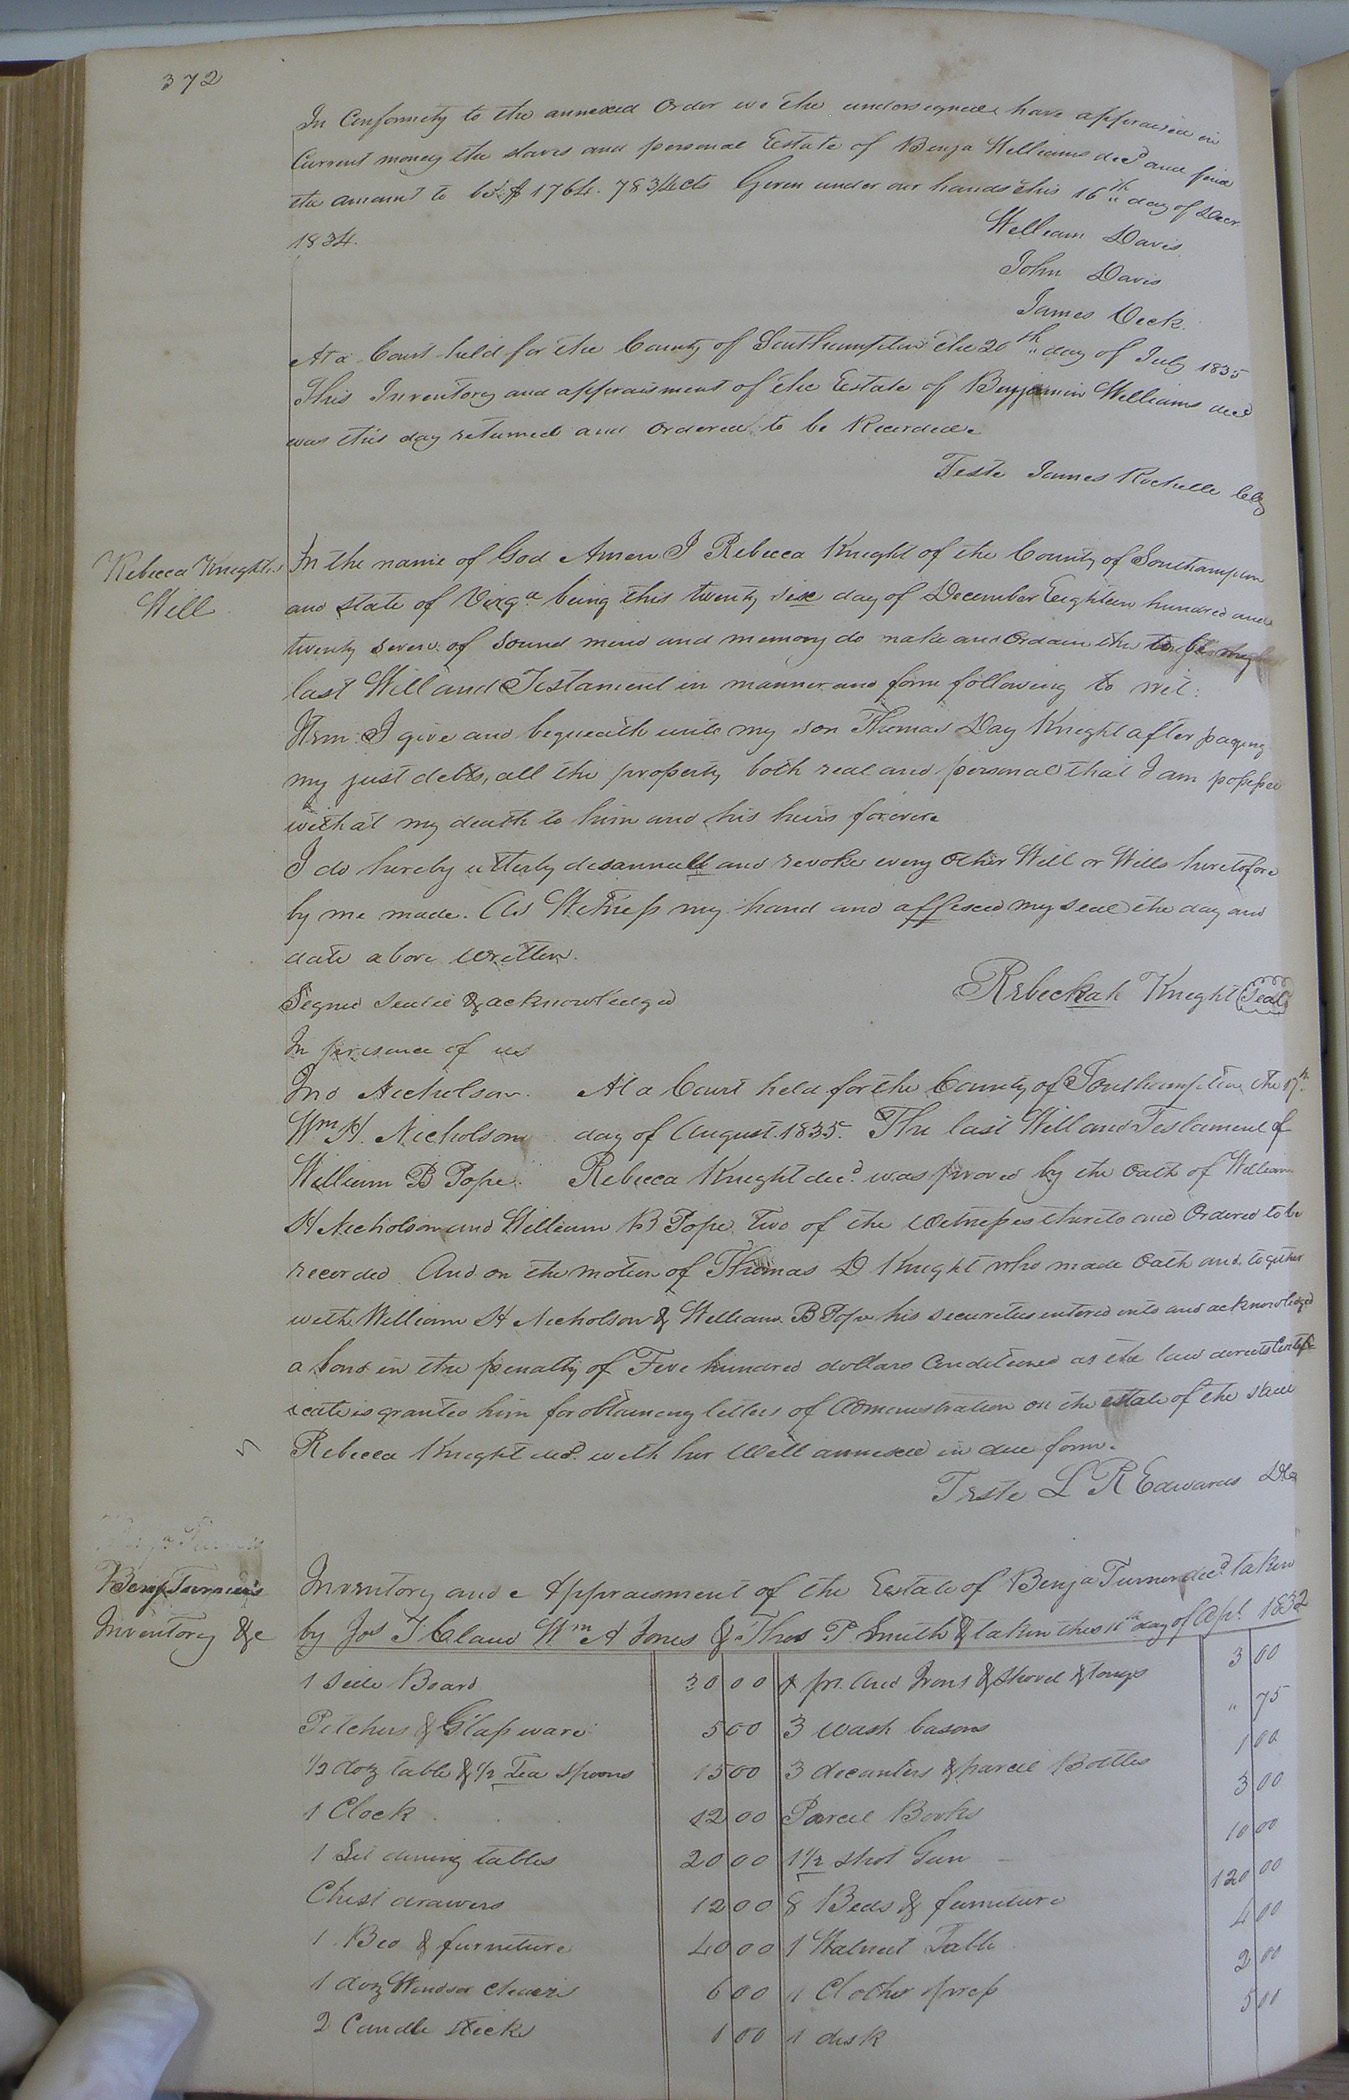 372
In Conformity to the annexed Order we the undersigned have appraised in
Current money the slaves and personal Estate of Benja Williams decd and find
the amount to be $1764. 78 3/4 cts Given under our hands this 16th day of Decr
1834.
William Davis
John Davis
James Vick
At a Court held for the County of Southampton the 20th day of July 1835
This Inventory and appraisment of the Estate of Benjamin Williams decd
was this day returned and Ordered to be Recorded
Teste James Rochelle Clk
Rebecca Knights
Will
In the name of God Amen I Rebecca Knight of the County of Southampton
and state of Virga being this twenty six day of December Eighteen hundred and
twenty seven of Sound mind and memory do make and Ordain this to be my
last Will and Testament in manner and form following to wit:
Item I give and bequeath unto my son Thomas Day Knight after paying
my just debts, all the property both real and personal that I am possessed
with at my death to him and his heirs forever
I do hereby utterly disannull and revoke every Other Will or Wills heretofore
by me made. As Witness my hand and affixed my seal the day and
date above written.
Signed sealed & acknowledged
Rebeckah Knight (Seal)
In presence of us
Jno Nicholson. At a Court held for the County of Southampton the 17th
Wm H. Nicholson day of August 1835. The last Will and Testament of
William B Pope. Rebecca Knight decd was proved by the Oath of William
H Nicholson and William B Pope two of the Witnesses thereto and Ordered to be
recorded And on the motion of Thomas D Knight who made Oath and together
with William H Nicholson & William B Pope his securities entered into and acknowledged
a bond in the penalty of Five hundred dollars Conditioned as the law directs Certifi
icate is granted him for obtaining letters of Administration on the estate of the said
Rebecca Knight decd with her Will annexed in due form.
Teste L R Edwards DC
Benja Turner's
Inventory &c
Inventory and Appraisment of the Estate of Benja Turner decd taken
by Jos T Claud Wm A Jones & Thos P Smith & taken this 11th day of Apl 1832
1 Side Board 30 00 pr. And Irons & Shovel & tongs 3 00
Pitchers & Glass ware 5 00 3 wash basons " 75
1/2 doz table & 1/2 Tea Spoons 15 00 3 decanters & parcel Bottles 1 00
1 Clock 12 00 Parcel Books 3 00
1 Set dining tables 20 00 1 1/2 shot Gun 10 00
Chest drawers 12 00 8 Beds & furniture 120 00
1 Bed & furniture 40 00 1 Walnut Table 4 00
1 doz Windsor chairs 6 00 1 Clothes press 2 00
2 Candle sticks 1 00 1 desk 5 00